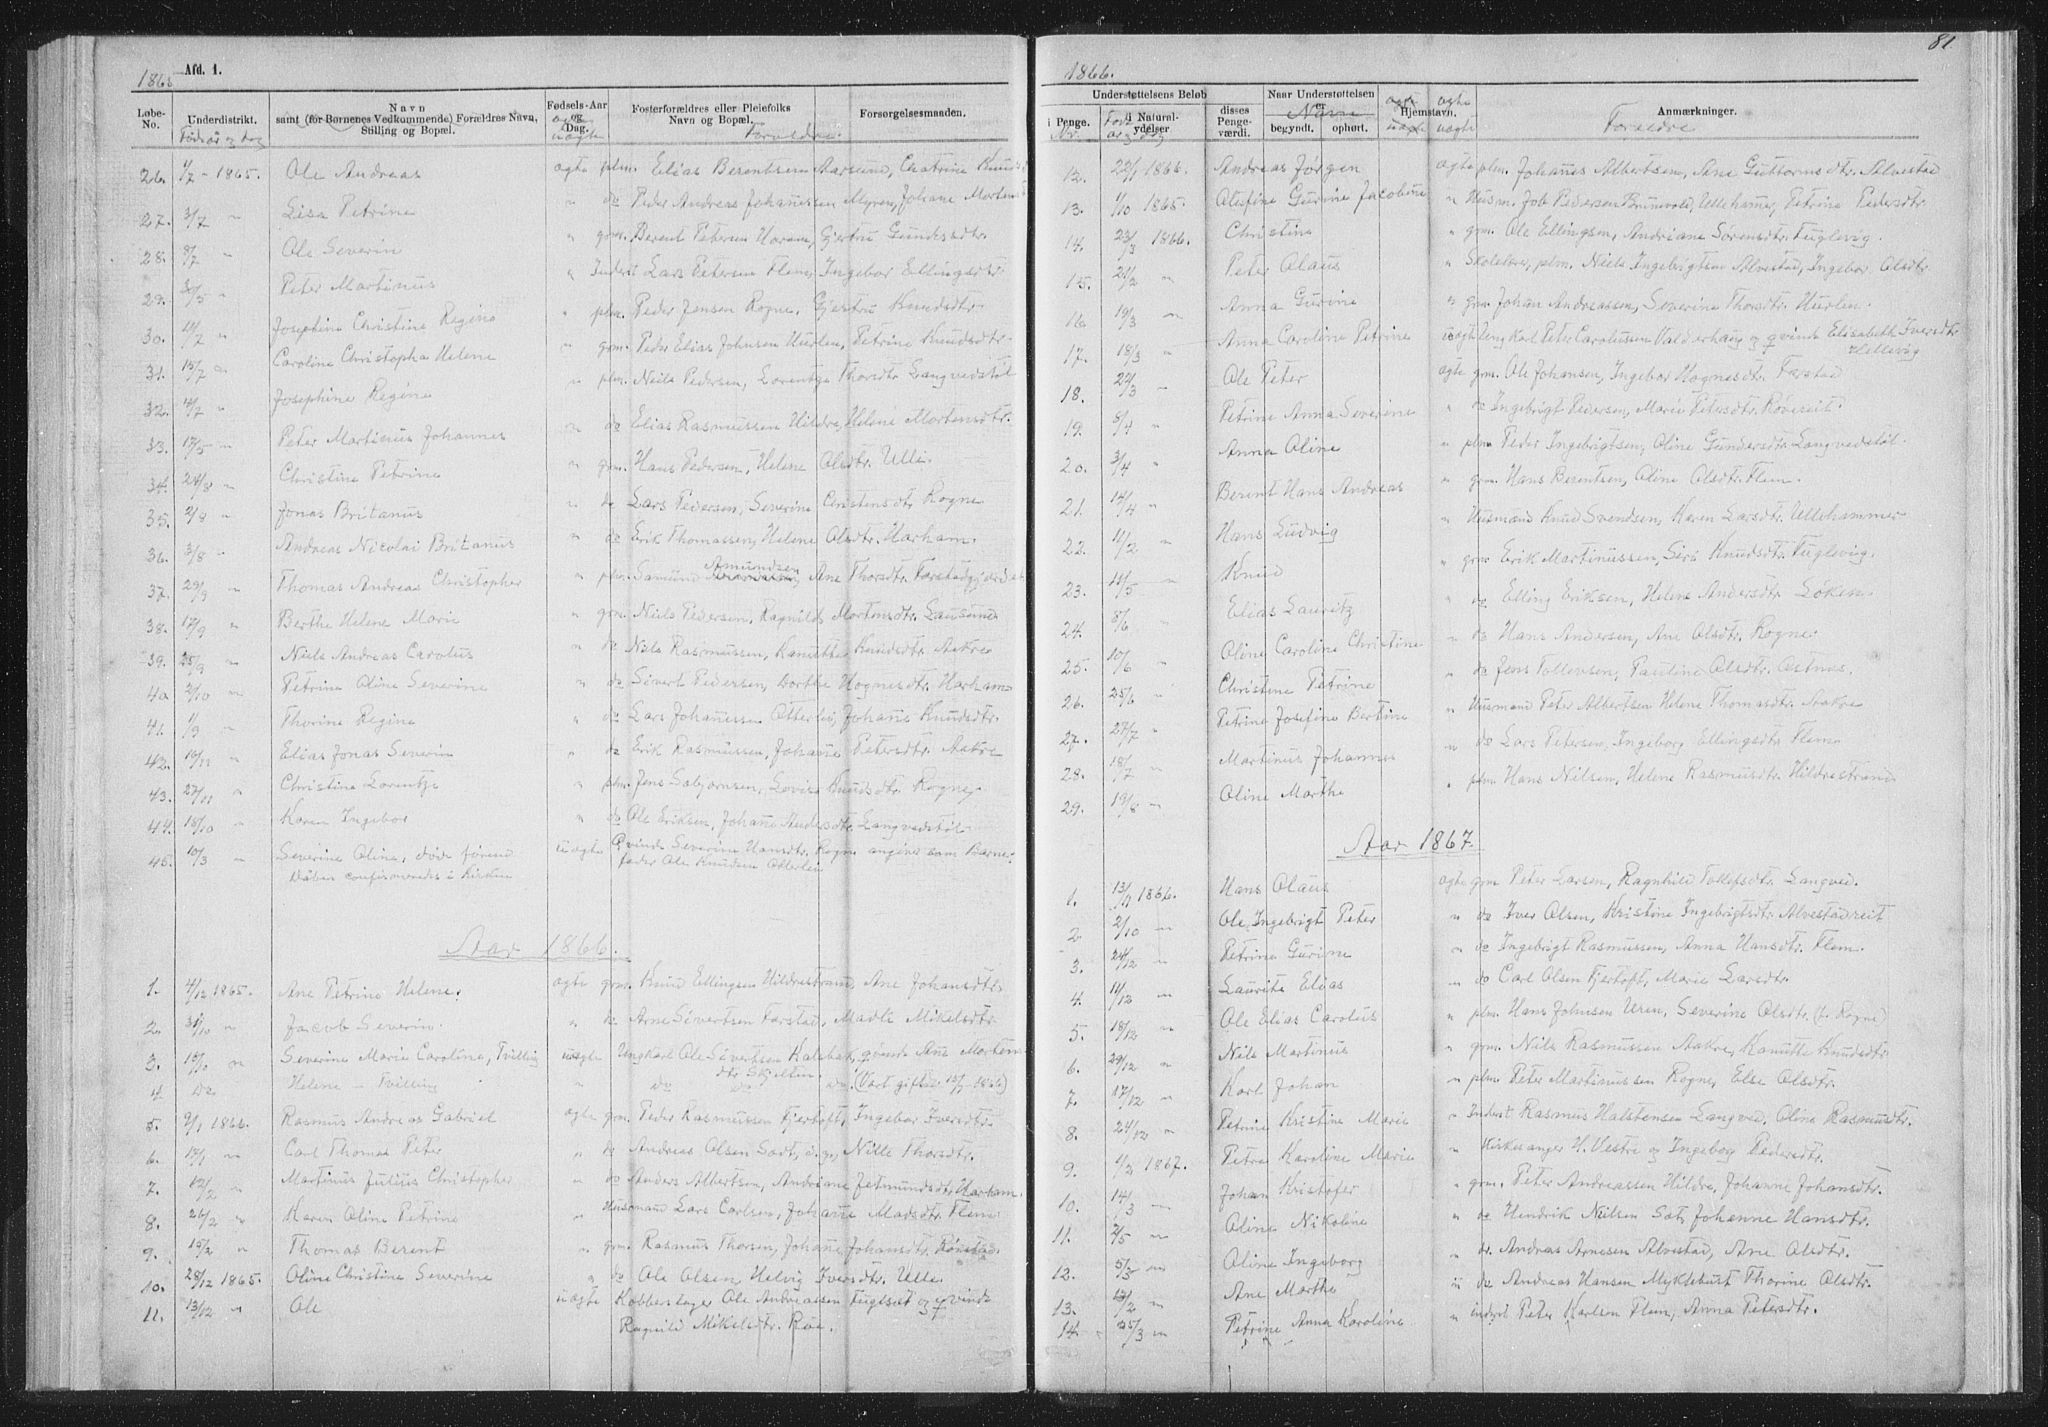 Afd. 1.
1865
Løbe-No.
Underdistrikt.
Navn
samt (for Børnenes Vedkommende) Forældres Navn,
Stilling og Bopæl.
Fødsels-Aar
og
Dag.
Fosterforældres eller Pleiefolks
Navn og Bopæl.
Forsorgelsesmaaden.
Fødselsaar og Dag
ægte
uægte
Forældre.
26. 1/7 - 1865. Ole Andreas ægte plm. Elias Berentsen Aarsund, Catrine Knudsd
27. 3/7 " Lisa Petrine " do Peder Andreas Johannessen Myren, Johane Mortensd
28. 9/7 " Ole Severin " grm. Berent Petersen Haram, Gjertru Gundersdtr.
29. 30/5 " Peter Martinus " Inderst Lars Petersen Flem, Ingebor Ellingsdtr.
30. 10/7 " Josephine Christine Regine " plm. Peder Jensen Rogne, Gjertru Knudsdtr.
31. 15/7 " Caroline Christopha Helene " grm. Peder Elias Johnsen Hurlen, Petrine Knudsdtr.
32. 4/7 " Josephine Regine " plm. Neils Pedersen, Lorentze Thorsdtr Langvedstøl
33. 17/5 " Peter Martinus Johannes " do Elias Rasmussen Hildre, Helene Mortensdtr.
34. 24/8 " Christine Petrine " grm. Hans Pedersen, Helene Olsdtr. Ulle.
35. 2/9 " Jonas Britanus " do Lars Pedersen, Severine Christensdtr Rogne
36. 3/8 " Andreas Nicolai Britanus " do Erik Thomassen, Helene Olsdtr. Harham.
37. 29/9 " Thomas Andreas Christopher " plm. Samund Amundsen, Ane Thorsdtr. Farstadgjærdet
38. 17/9 " Berthe Helene Marie " grm. Niels Pedersen, Ragnild Mortensdtr. Lausund
39. 25/9 " Niels Andreas Carolus " do Niels Rasmussen, Kanutte Knudsdtr. Aakre
40. 2/10 " Petrine Oline Severine " do Sivert Pedersen, Dorthe Hognesdtr. Harham
41. 1/9 " Thorine Regine " do Lars Johanessen Otterlei, Johane Knudsdtr.
42. 10/11 " Elias Jonas Severin " do Erik Rasmussen, Johanne Petersdtr. Aakre
43. 27/11 " Christine Lorentze " plm. Jens Sabjørnsen, Lovise Knudsdtr. Rogne
44. 18/10 " Karen Ingebor " do Ole Eriksen, Johanne Andersdtr. Langvedstøl
45. 10/3 " Severine Oline, døde førend uægte Qvinde Severine Hansdtr. Rogne angiver som Barne-
Daaben confirmeredes i Kirken fader Ole Knudsen Otterlei
Aar 1866.
1. 4/12 1865. Ane Petrine Helene. ægte grm. Knud Ellingsen Hildrestrand, Ane Johansdtr.
2. 31/10 " Jacob Severin. " do Arne Sivertsen Farstad, Madli Mikelsdtr
3. 15/10 " Severine Marie Caroline, Tvilling uægte Ungkarl Ole Sivertsen Kalsbak, qvinde Ane Morten
dtr Skjelten
4. do Helene - Tvilling " do do do. (Vort giftede 15/7 1866)
5. 2/1 1866. Rasmus Andreas Gabriel ægte grm. Peder Rasmussen Fjertoft, Ingebor Iversdtr.
6. 17/1 " Carl Thomas Peter " do Andreas Olsen Sadt, Nille Thorsdtr.
7. 12/2 " Martinus Julius Christopher " do Anders Albertsen, Andriane Jetmundsdtr. Harham.
8. 26/2 " Karen Oline Petrine " Husmand Lars Carlsen, Johanne Madsdtr. Flem
9. 15/2 " Thomas Berent " grm. Rasmus Thorsen, Johanne Johansdtr. Rønstad
10. 28/12 1865. Oline Christine Severine " do Ole Olsen, Helvig Iversdtr. Ulle.
11. 13/12 " Ole uægte Kobberslager Ole Andreassen Fuglset og qvinde
Ragnild Mikelsdtr. Røe.
81
1866.
Understøttelsens Beløb
i Penge.
i Natural-
ydelser
disses
Penge-
værdi.
Naar Understøttelsen
er
begyndt.
ophørt.
Hjemstavn.
Anmærkninger.
Nr.
Født
aar og dag
Navne
ægte
uægte
ægte
uægte
Forældre
12. 22/1 1866. Andreas Jørgen ægte plm. Johanes Albertsen, Ane Guttormsdtr. Alvestad
13. 1/10 1865. Olufine Gurine Jacobine " Husm. Job Pedersen Brunvold, Ullehamer, Petrine Pedersdtr.
14. 23/3 1866. Christine " grm. Ole Ellingsen, Andriane Sørensdtr. Fuglevig.
15. 21/2 " Peter Olaus " Skolelærer, plm. Niels Ingebrigtsen Alvestad, Ingebor Olsdtr.
16 19/3 " Anna Gurine " grm. Johan Andreassen, Severine Thorsdtr. Hurlen.
17. 18/3 " Anna Caroline Petrine uægte Ung Karl Peter Carolussen Valderhaug og qvinde Elisabeth Iversdtr
Hellevig
18. 22/3 " Ole Peter ægte grm. Ole Johansen, Ingebor Hognesdtr. Farstad
19. 8/4 " Petrine Anna Severine " do Ingebrigt Pedersen, Marie Petersdtr. Røvereit.
20. 3/4 " Anna Oline " plm. Peder Ingebrigtsen, Oline Gundersdtr. Langvedstøl.
21. 14/4 " Berent Hans Andreas " grm. Hans Berentsen, Oline Olsdtr. Flem.
22. 11/2 " Hans Ludvig " Husmand Knud Svendsen, Karen Larsdtr. Ullehammer
23. 11/5 " Knud " grm. Erik Martinussen, Siri Knudsdtr. Fuglevig.
24. 8/6 " Elias Lauritz " do Elling Eriksen, Helene Andersdtr. Løken.
25. 10/6 " Oline Caroline Christine " do Hans Andersen, Ane Olsdtr. Rogne.
26. 25/6 " Christine Petrine " do Jens Tollevsen, Pauline Olsdtr. Østnes.
27. 27/7 " Petrine Josefine Bertine " Husmand Peter Albertsen Helene Thomasdtr. Aakre
28. 18/7 " Martinus Johannes " do Lars Petersen, Ingeborg Ellingsdtr. Flem.
29. 19/8 " Oline Marthe " plm. Hans Nilsen, Helene Rasmusdtr. Hildrestrand
Aar 1867.
1. 13/11 1866. Hans Olaus ægte grm Peter Larsen, Ragnhild Tollefsdtr. Langved.
2 2/10 " Ole Ingebrigt Peter " do Iver Olsen, Kristine Ingebrigtsdtr. Alvestadreit
3. 24/12 " Petrine Gurine " do Ingebrigt Rasmussen, Anna Hansdtr. Flem.
4. 11/12 " Laurits Elias " do Carl Olsen Fjertoft, Marie Larsdtr.
5. 18/12 " Ole Elias Carolus " plm. Hans Johnsen Uren, Severine Olsdtr. (f. Rogne)
6. 29/12 " Nils Martinus " grm. Nils Rasmussen Aakre, Kanutte Knudsdtr.
7. 17/12 " Karl Johan " plm. Peter Martinussen Rogne, Else Olsdtr.
8. 24/12 " Petrine Kristine Marie " Inderst Rasmus Halstensen Langved. Oline Rasmusdtr.
9. 4/2 1867. Petra Karoline Marie " Kirkesanger H. Vestre og Ingeborg Pedersdtr.
10. 14/3 " Johan Kristofer " grm. Peter Andreassen Hildre, Johanne Johansdtr.
11. 2/5 " Oline Nikoline " do Hendrik Nilsen Sat, Johanne Hansdtr.
12. 5/3 " Oline Ingeborg " do. Andreas Arnesen Alvestad, Ane Olsdtr.
13. 13/2 " Ane Marthe " do Andreas Hansen Myklebust Thorine Olsdtr.
14. 25/3 " Petrine Anna Karoline " inderst Peter Karlsen Flem, Anna Petersdtr.